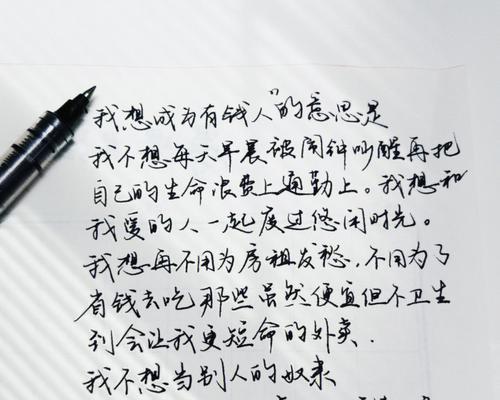 我想成为有钱人"的意思是
我不想每天早晨被闹钟吵醒再把
自己的生命浪费上通勤上。我想和
我爱的人一起度过悠闲时光。
我想再不用为房租发愁，不用为了
省钱去吃那些虽然便宜但不卫生
到会让我更短命的外卖.
我不想当别人的奴隶